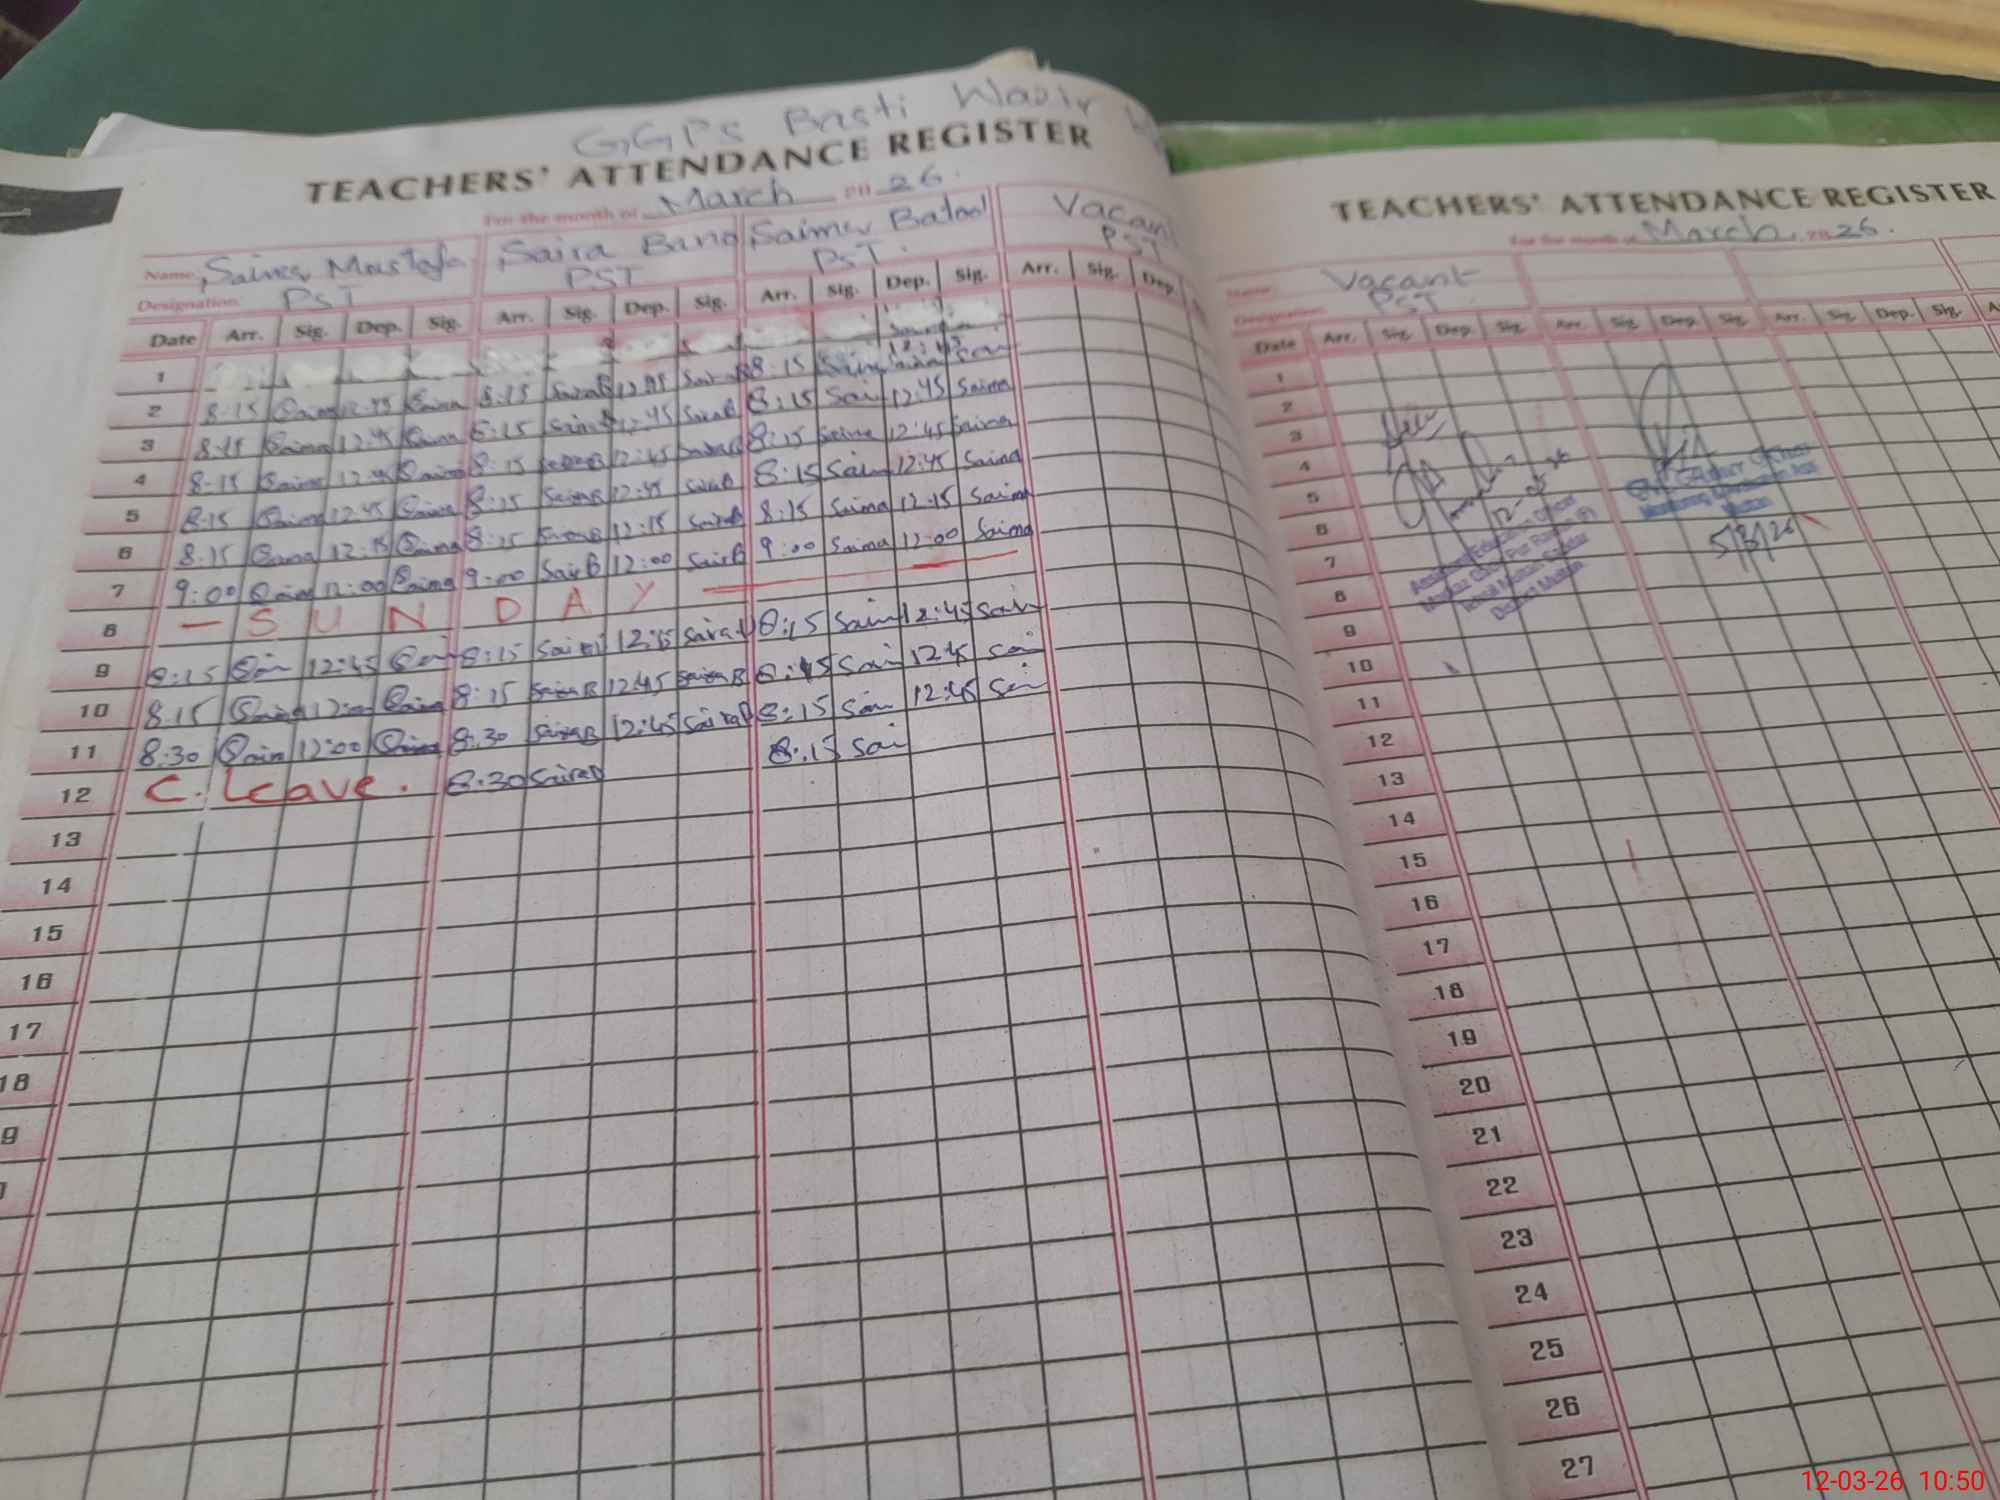 GGPS Basti Wazir
TEACHERS' ATTENDANCE REGISTER
For the month of March 20 26.
Name Saima Mustafa Saira Bano Saima Batool Vacant
Designation PST PST PST. PST
Date Arr. Sig. Dep. Sig. Arr. Sig. Dep. Sig. Arr. Sig. Dep. Sig. Arr. Sig. Dep.
1
2 8:15 Saima 12:45 Saima 8:15 SairaB 12:45 SairaB 8:15 Saima
3 8:15 Saima 12:45 Saima 8:15 12:45 SairaB 8:15 Sai 12:45 Saima
4 8:15 Saima 12:45 Saima 8:15 SairaB 12:45 SairaB 8:15 Saima 12:45 Saima
5 8:15 Saima 12:45 Saima 8:15 SairaB 12:45 SairaB 8:15 Saima 12:45 Saima
6 8:15 Saima 12:15 Saima 8:15 SairaB 12:15 SairaB 8:15 Saima 12:15 Saima
7 9:00 Saima 12:00 Saima 9:00 SairB 12:00 SairB 9:00 Saima 12:00 Saima
8 — S U N D A Y —
9 8:15 Sai 12:45 Sai 8:15 12:45 8:15 Saim 12:45 Sai
10 8:15 Saima Saima 8:15 SairaB 12:45 SairaB 8:15 Sai 12:45 Sai
11 8:30 Saim 12:00 Saima 8:30 SairaB 12:45 SairaB 8:15 Sai 12:45 Sai
12 C. Leave. 8:30 SairaB 8:15 Sai
13
14
15
16
17
18
9
TEACHERS' ATTENDANCE REGISTER
For the month of March 20 26.
Name Vacant
Designation PST
Date Arr. Sig. Dep. Sig. Arr. Sig. Dep. Sig. Arr. Sig. Dep. Sig.
1
2
3
4
5
6
7
8
9
10
11
12
13
14
15
16
17
18
19
20
21
22
23
24
25
26
27
Assistant Education Officer
District Multan
Multan
5/3/26
12-03-26 10:50